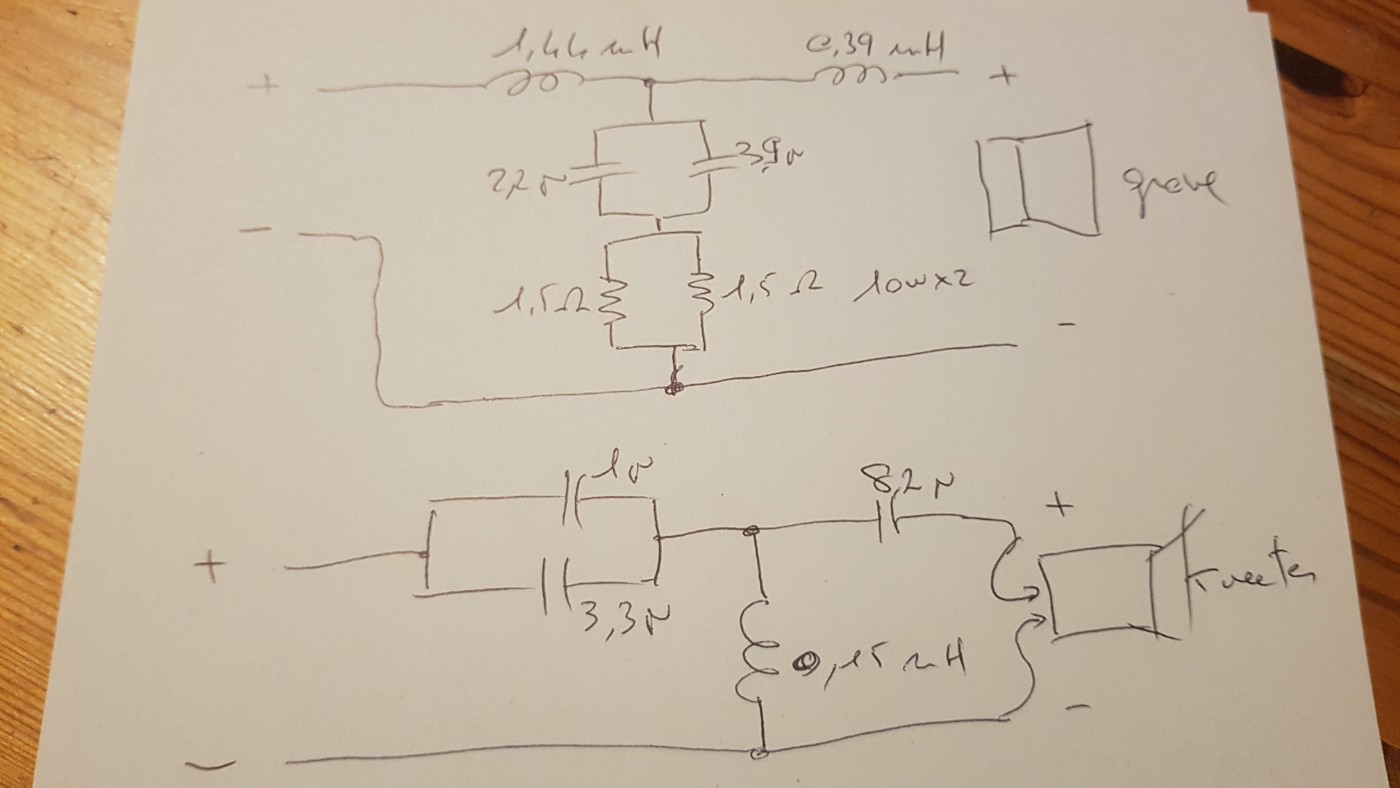 1,44 mH
0,39 mH
+
+
2,2 µ
3,9 µ
grave
-
1,5 Ω
1,5 Ω 10w x2
-
1 µ
8,2 µ
+
+
3,3 µ
tweeter
0,15 mH
-
-